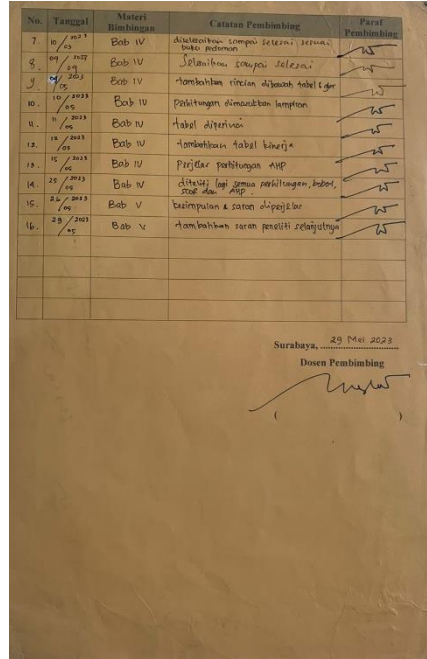 No. Tanggal Materi Bimbingan Catatan Pembimbing Paraf Pembimbing
7. 10/05 2023 Bab IV diselesaikan sampai selesai sesuai
buku pedoman
8. 09/ Bab IV Selesaikan sampai selesai
9. 09/05 2023 Bab IV tambahkan rincian dibawah tabel & gbr
10. 10/05 2023 Bab IV Perhitungan dimasukkan lampiran
11. 11/05 2023 Bab IV tabel diperinci
12. 12/05 2023 Bab IV tambahkan tabel kinerja
13. 15/05 2023 Bab IV Perjelas perhitungan AHP
14. 25/05 2023 Bab IV diteliti lagi semua perhitungan, bobot,
scor dan AHP
15. 26/05 2023 Bab V kesimpulan & saran diperjelas
16. 29/05 2023 Bab V tambahkan saran peneliti selanjutnya
Surabaya, 29 Mei 2023
Dosen Pembimbing
( )